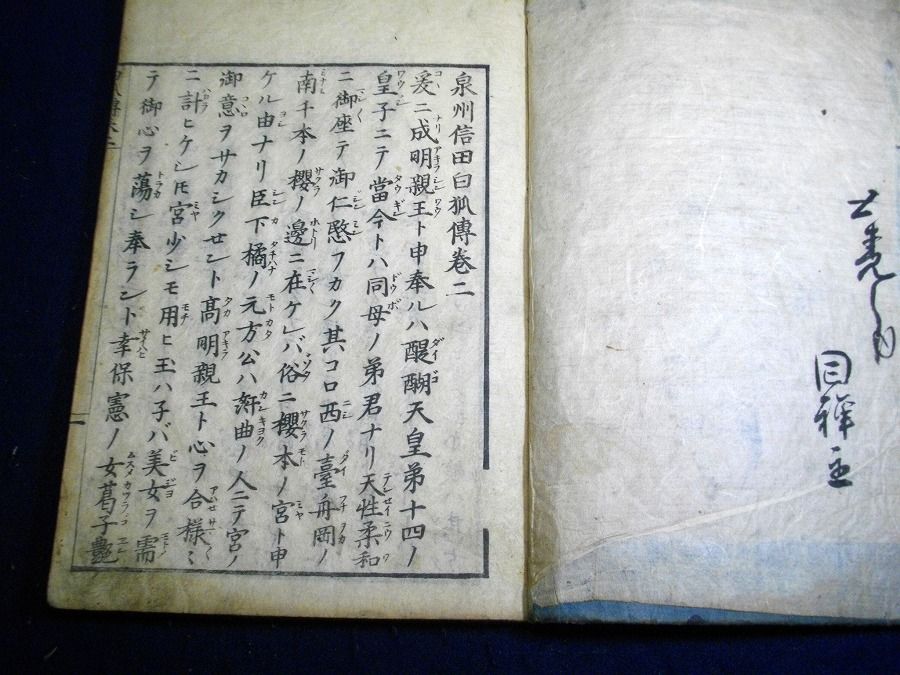 泉州信田白狐傳巻二
爰ニ成明親王ト申奉ルハ醍醐天皇第十四ノ
皇子ニテ當今トハ同母ノ弟君ナリ天性柔和
ニ御座テ御仁愍フカク其コロ西ノ臺舟岡ノ
南千本ノ櫻ノ邊ニ在ケレバ俗ニ櫻本ノ宮ト申
ケル由ナリ臣下橘ノ元方公ハ奸曲ノ人ニテ宮ノ
御意ヲサカシクセント髙明親王ト心ヲ合様〻
ニ計ヒケレモ宮少シモ用ヒ玉ハ子バ美女ヲ需
テ御心ヲ蕩シ奉ラント幸保憲ノ女葛子艶